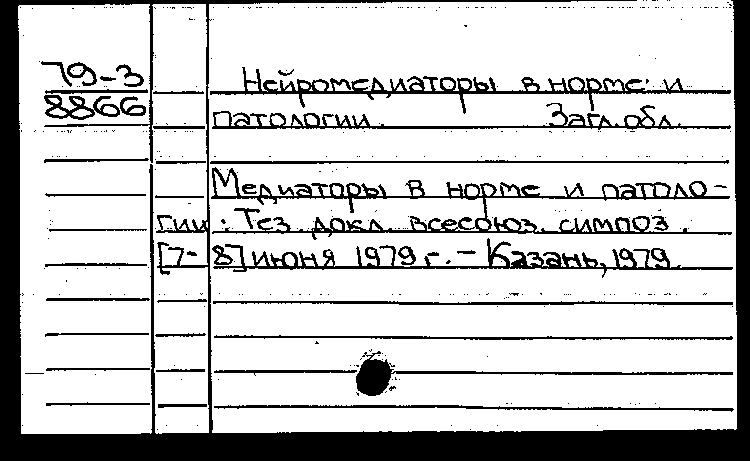 79-3 Нейромедиаторы в норме и
8866 патологии. Загл. обл.
Медиаторы в норме и патоло-
гии : Тез. докл. всесоюз. симпоз.
[7-8] июня 1979 г. - Казань, 1979.